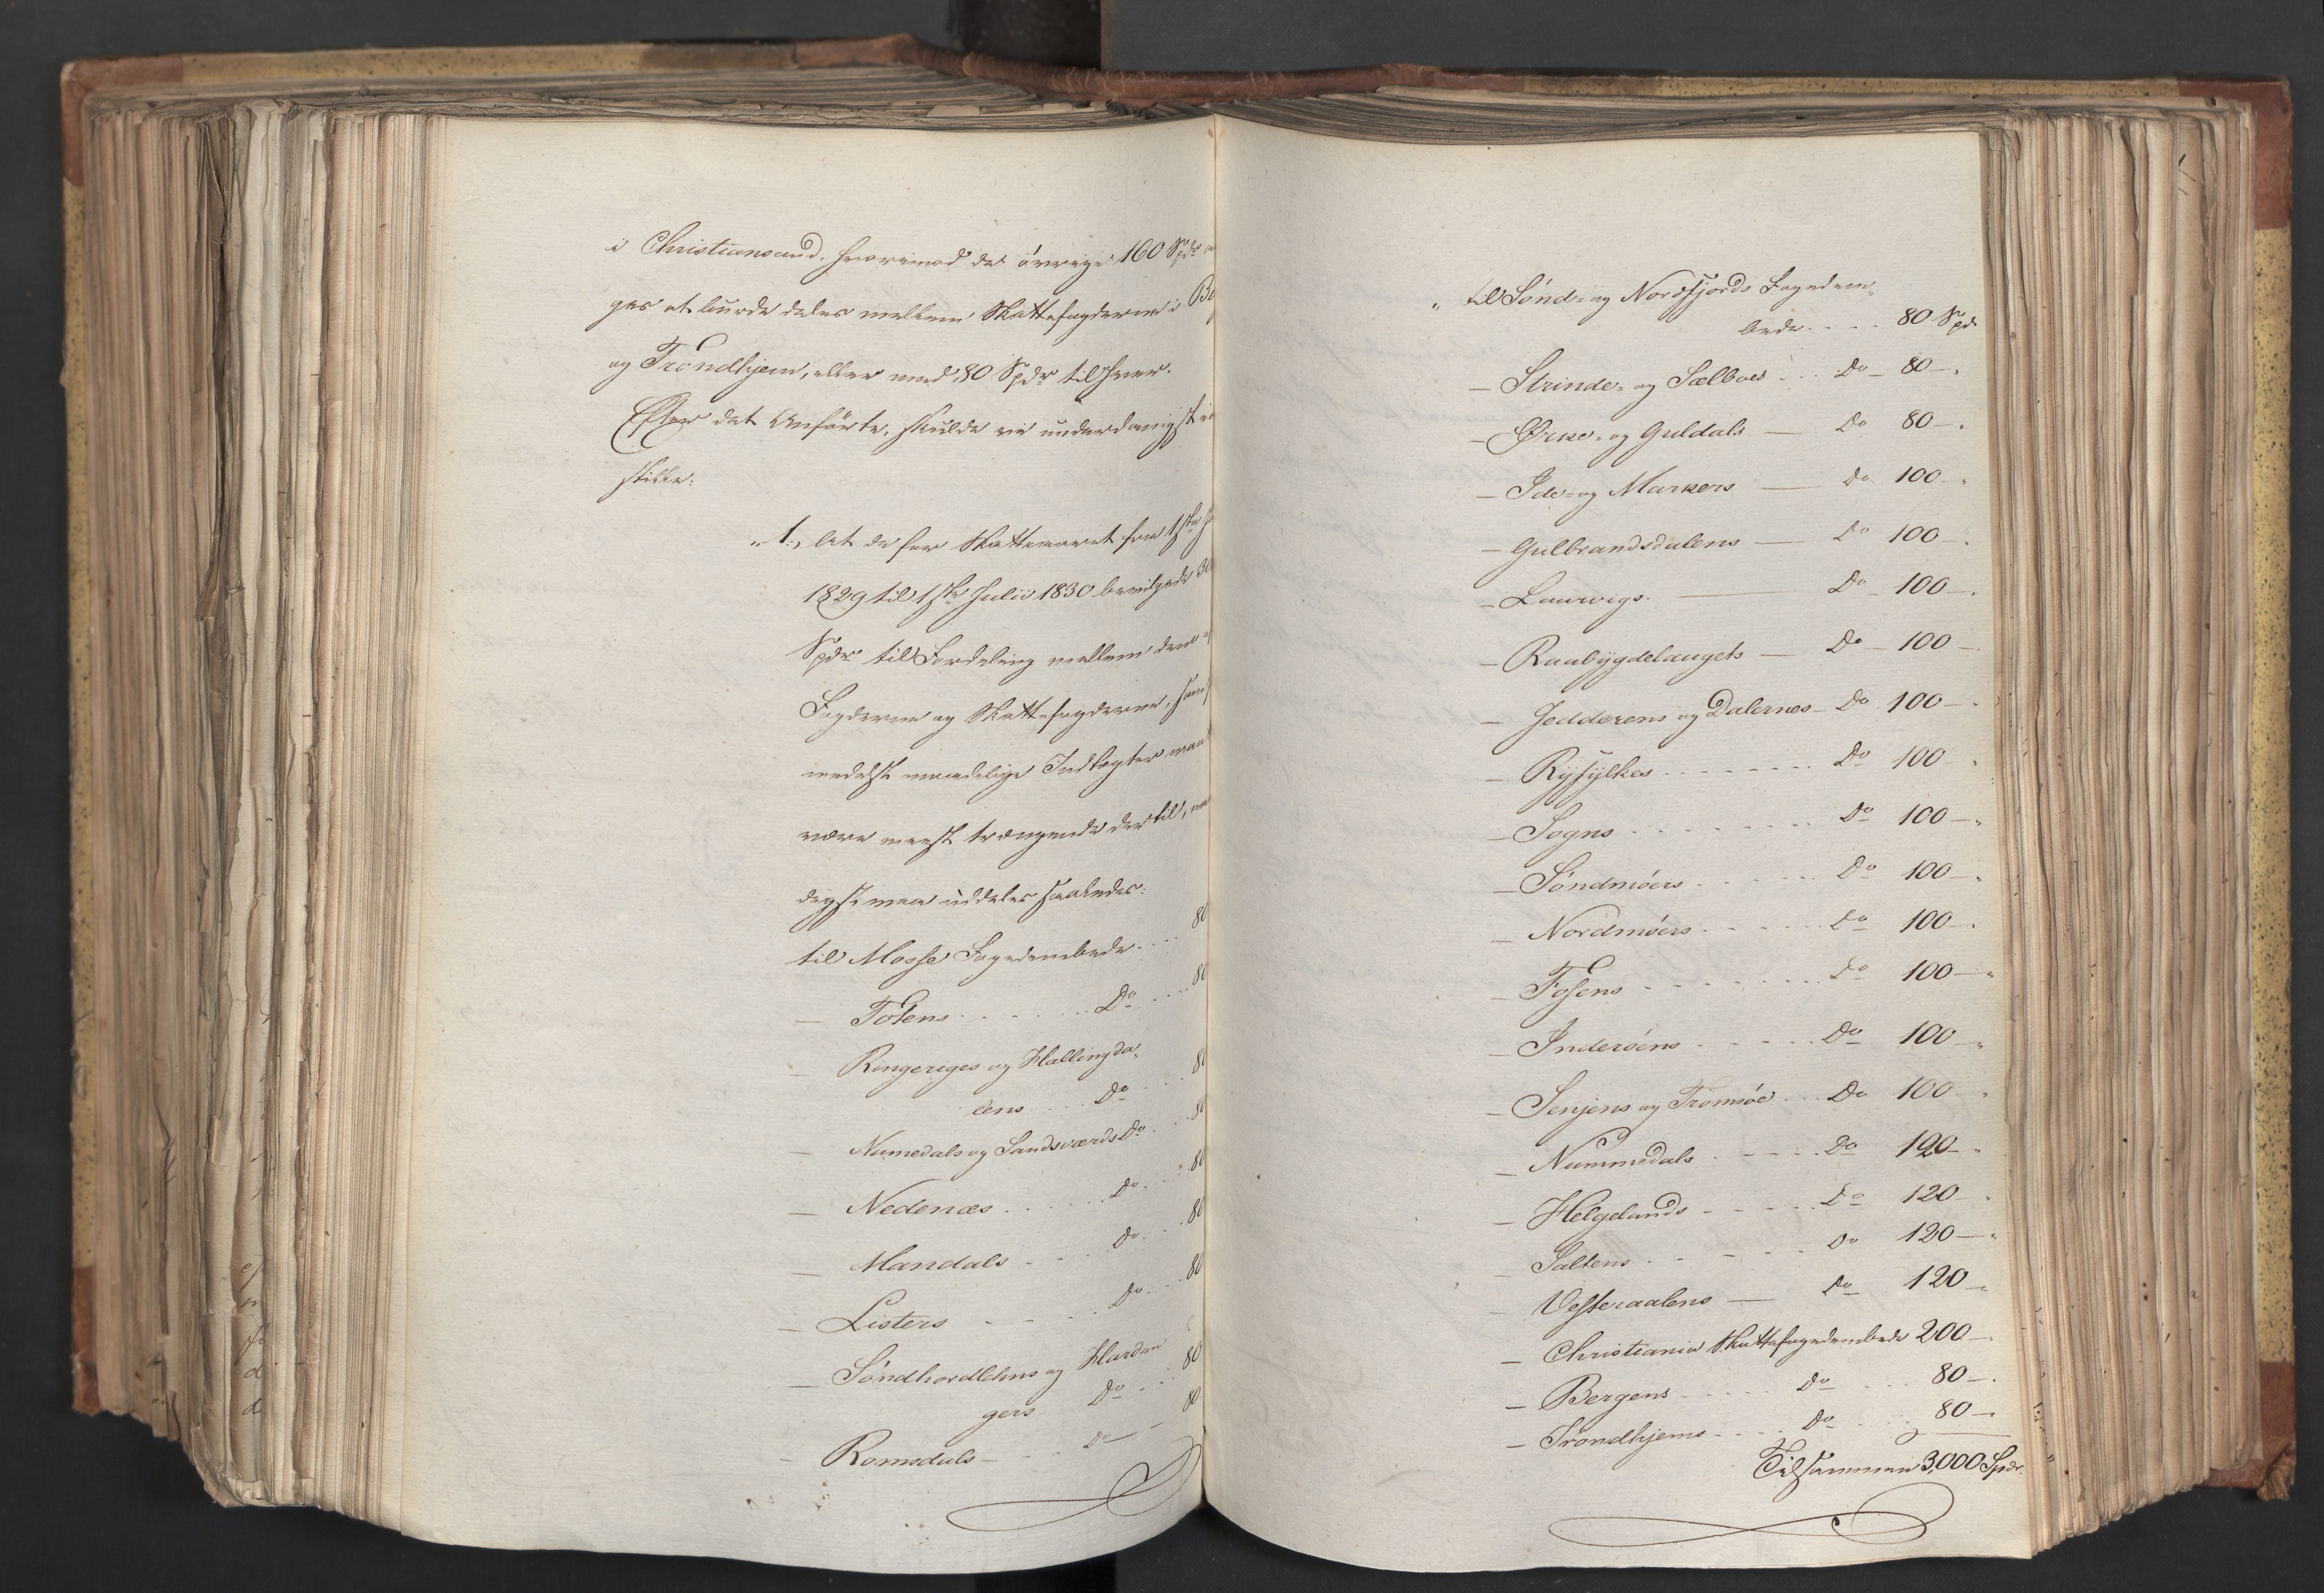 i Christiansand, hvorimod de övrige 160 Spdr
ges at burde deles mellem Skattefogderne i Be
og Trondhjem, eller med 80 Spdr til hver.
Efter det Anförte, skulde vi underdanigst
stille:
"1., At de for Skatteaaret fra 1ste J
1829 til 1ste Julii 1830 bevilgede 30
Spdr til Fordeling mellem de
Fogderne og Skattefogderne, som
medelst maadelige Indtægter maa
være meest trængende dertil,
digst maa uddeles saaledes:
til Mosse Fogedembede .... 80
— Totens ...... Do .... 80
— Ringeriges og Hallingda-
lens ... Do .... 80
— Numedals og Sandsværds Do ... 80
— Nedenæs ...... Do .... 80
— Mandals - - - Do ... 80
— Listers - - - Do ... 80
— Söndhordlehns og Hardan
gers Do ... 80
— Romsdals — Do — 80
" til Sönd- og Nordfjords Fogedem-
bede .... 80 Spd
— Strinde- og Sælboes ... Do — 80 —"
— Ørke- og Guldals — Do 80 —"
— Ide- og Markers — Do 100 —"
— Gulbrandsdalens — Do 100 —"
— Laurvigs. Do — 100 —"
— Raabygdelaugets — Do — 100 —
— Jedderens og Dalernes — Do 100 —"
— Ryfylkes ........ Do 100 — "
— Sogns ........ Do 100 —"
— Söndmöers ...... Do 100 —"
— Nordmöers ...... Do 100 —"
— Fosens ........ Do 100 —"
— Inderöens ...... Do 100 —"
— Senjens og Tromsöe ... Do 100 — "
— Nummedals . - - - . Do 120 — "
— Helgelands - - - - . Do 120 — "
— Saltens . - - - . Do 120 —"
— Vesteraalens — Do 120 —"
— Christiania Skattefogedembede 200 —
— Bergens ..... Do .... 80 —"
— Trondhjems .... Do .... 80 —"
Tilsammen 3,000 Spdr.